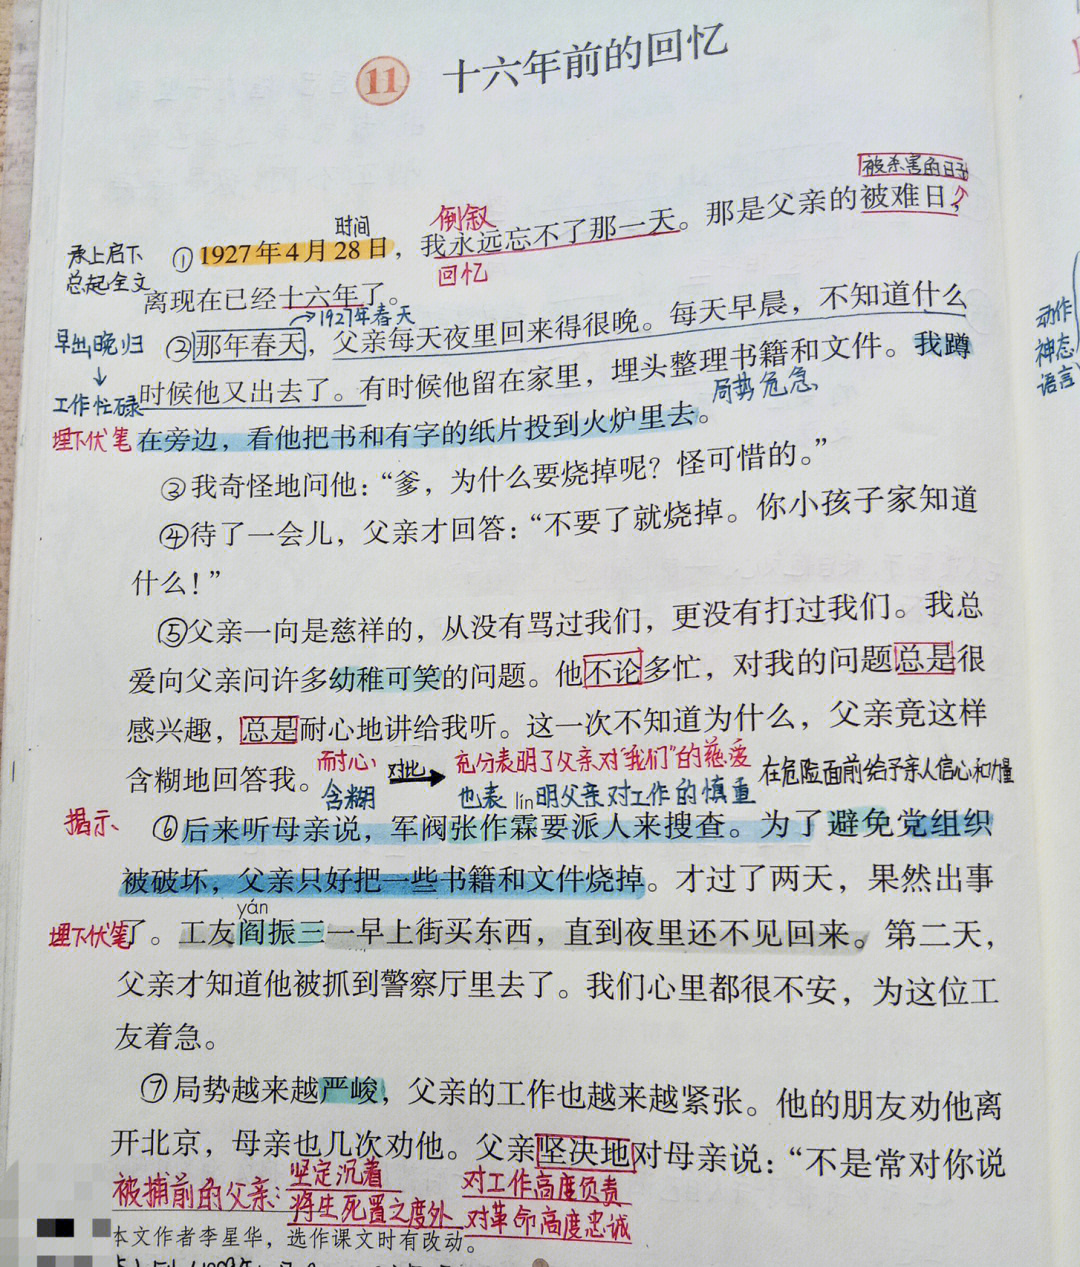 11 十六年前的回忆
被杀害的日子
时间 倒叙
承上启下 ①1927年4月28日，我永远忘不了那一天。那是父亲的被难日，
总起全文 回忆
离现在已经十六年了。
→1927年春天
早出晚归 ②那年春天，父亲每天夜里回来得很晚。每天早晨，不知道什么
动作
神态
语言
工作忙碌 时候他又出去了。有时候他留在家里，埋头整理书籍和文件。我蹲
局势危急
埋下伏笔 在旁边，看他把书和有字的纸片投到火炉里去。
③我奇怪地问他：“爹，为什么要烧掉呢？怪可惜的。”
④待了一会儿，父亲才回答：“不要了就烧掉。你小孩子家知道
什么！”
⑤父亲一向是慈祥的，从没有骂过我们，更没有打过我们。我总
爱向父亲问许多幼稚可笑的问题。他不论多忙，对我的问题总是很
感兴趣，总是耐心地讲给我听。这一次不知道为什么，父亲竟这样
含糊地回答我。
耐心 对比 充分表明了父亲对“我们”的慈爱 在危险面前给予亲人信心和力量
含糊 也表明父亲对工作的慎重
lín
揭示 ⑥后来听母亲说，军阀张作霖要派人来搜查。为了避免党组织
被破坏，父亲只好把一些书籍和文件烧掉。才过了两天，果然出事
yán
埋下伏笔 了。工友阎振三一早上街买东西，直到夜里还不见回来。第二天，
父亲才知道他被抓到警察厅里去了。我们心里都很不安，为这位工
友着急。
⑦局势越来越严峻，父亲的工作也越来越紧张。他的朋友劝他离
开北京，母亲也几次劝他。父亲坚决地对母亲说：“不是常对你说
被捕前的父亲： 坚定沉着 对工作高度负责
将生死置之度外 对革命高度忠诚
本文作者李星华，选作课文时有改动。